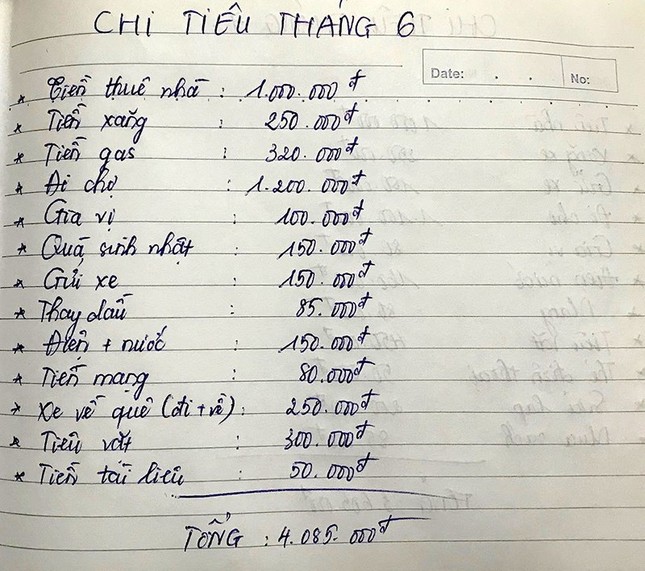 CHI TIÊU THÁNG 6
Date: . . . No:
* Tiền thuê nhà : 1.000.000đ
* Tiền xăng : 250.000đ
* Tiền gas : 320.000đ
* Đi chợ : 1.200.000đ
* Gia vị : 100.000đ
* Quà sinh nhật : 150.000đ
* Gửi xe : 150.000đ
* Thay dầu : 85.000đ
* Điện + nước : 150.000đ
* Tiền mạng : 80.000đ
* Xe về quê (đi + về) : 250.000đ
* Tiêu vặt : 300.000đ
* Tiền tài liệu : 50.000đ
TỔNG : 4.085.000đ